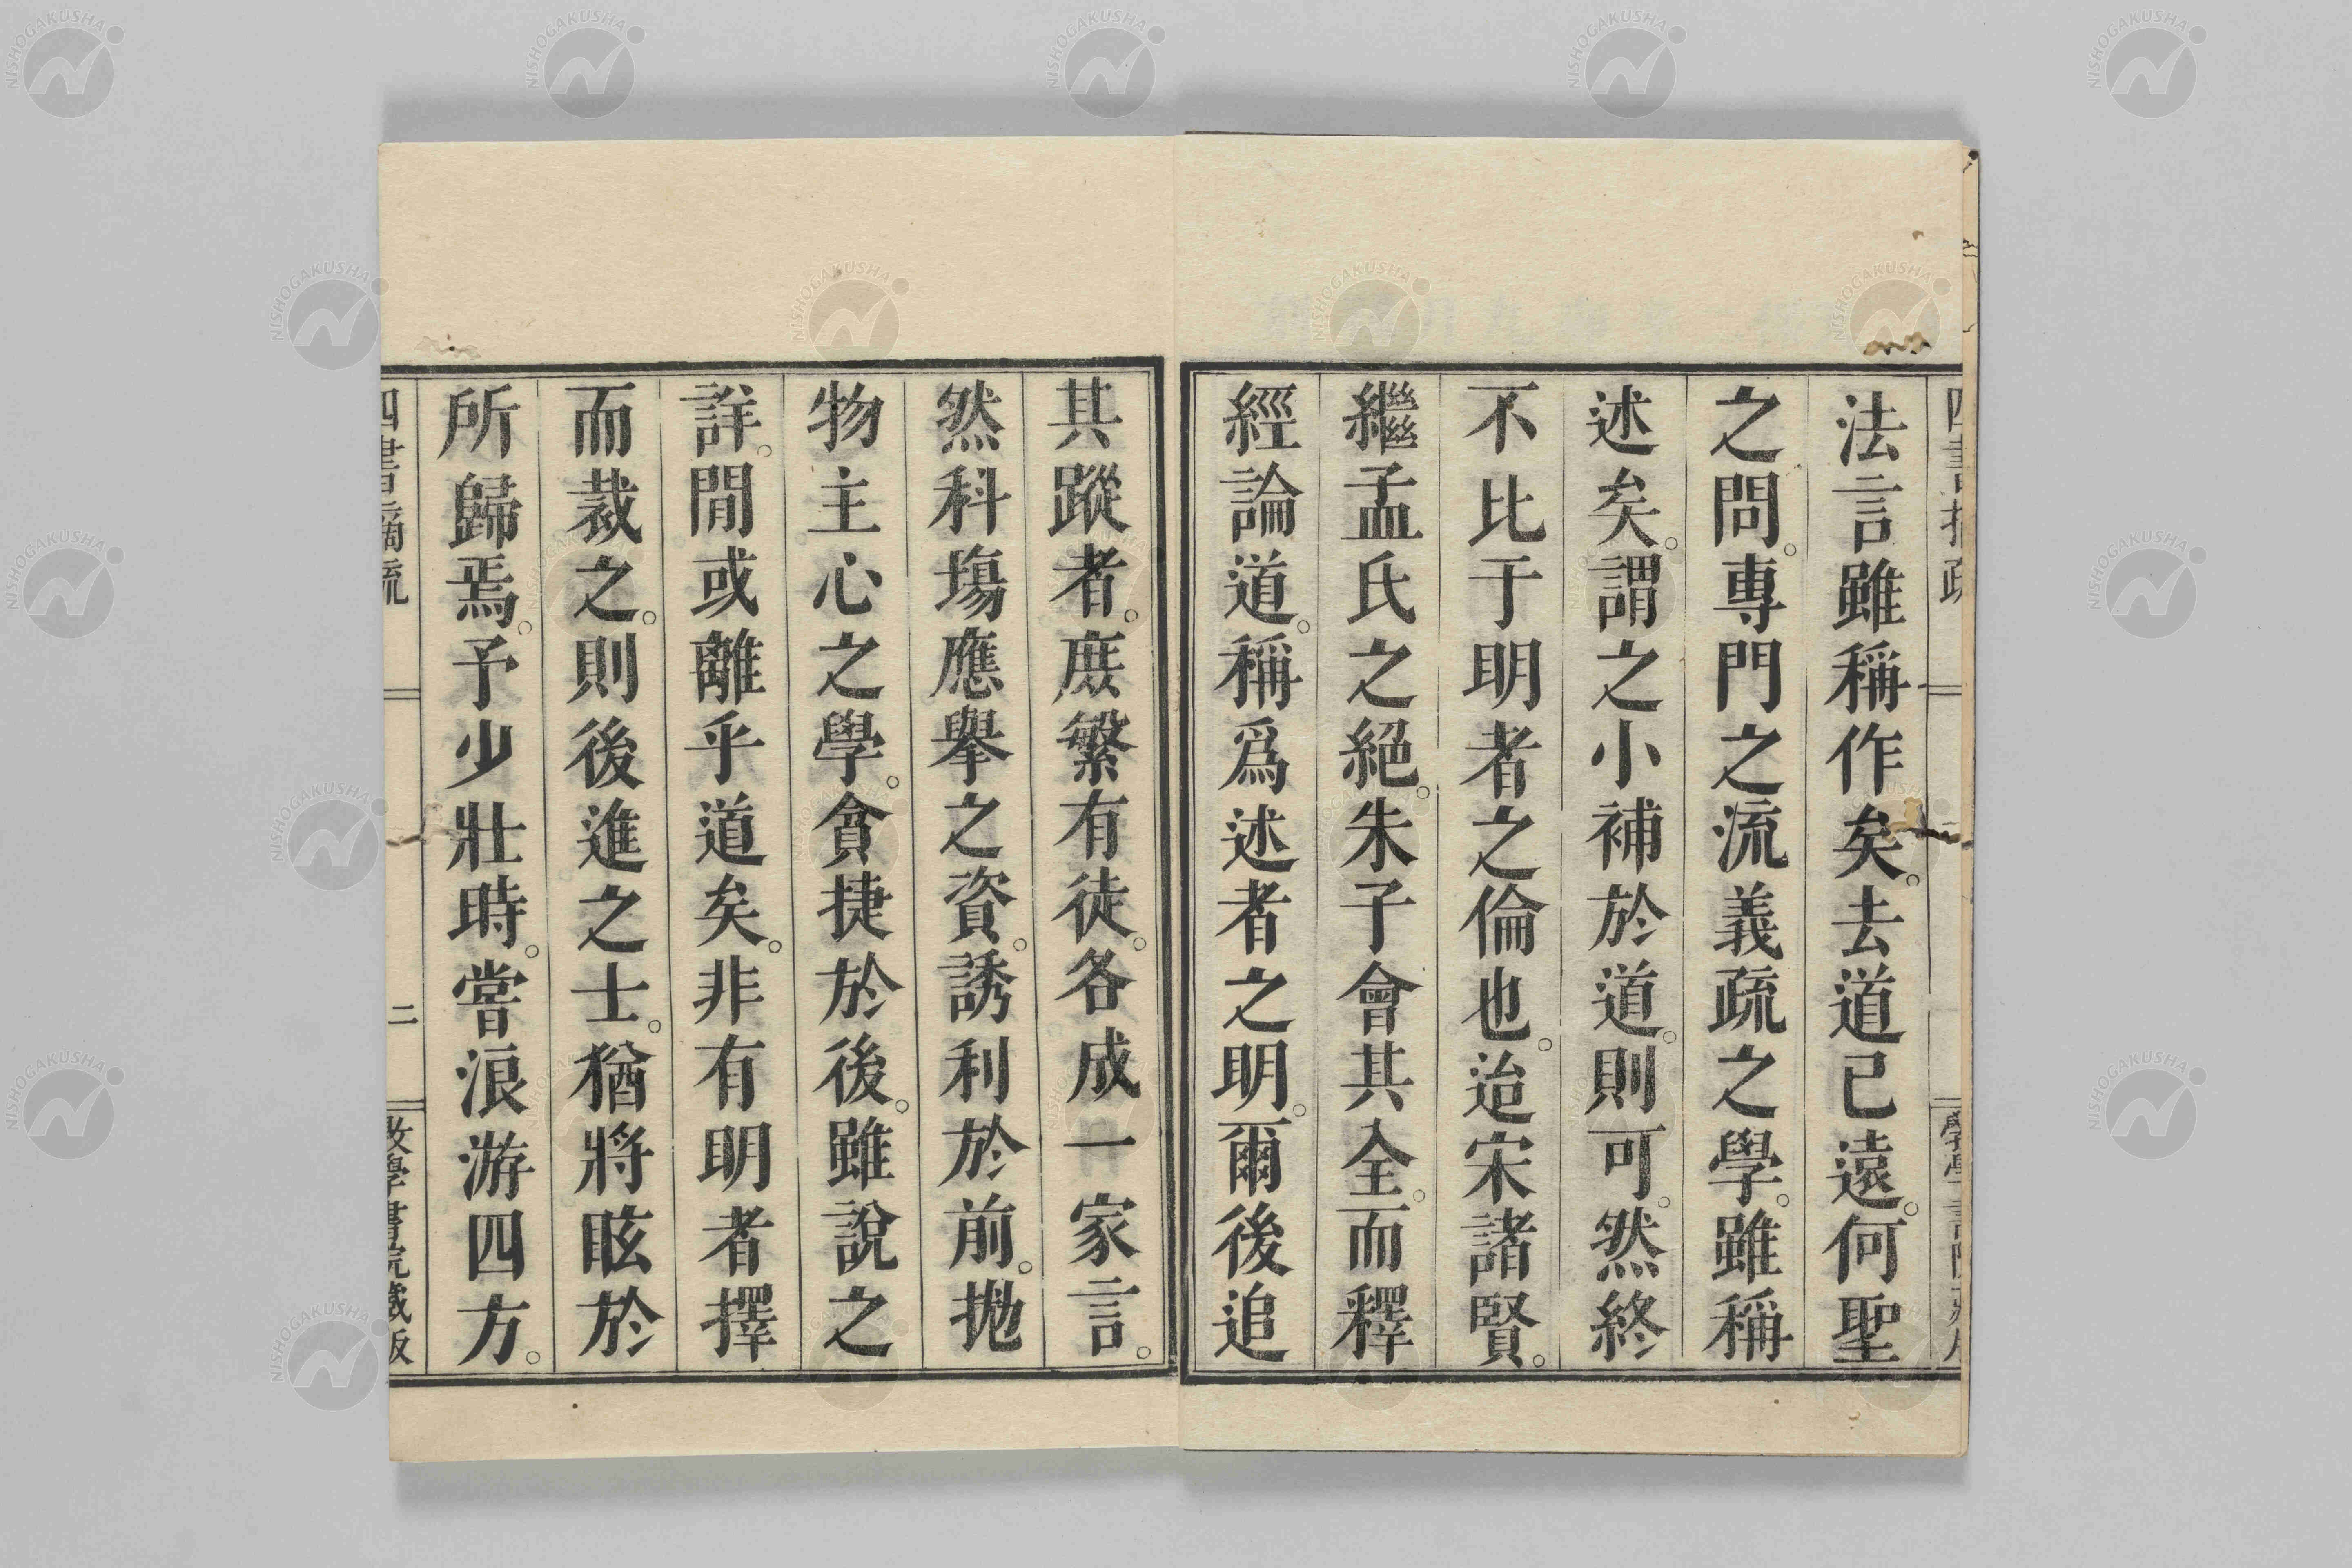 法言雖稱作矣。去道已遠。何聖
之問。專門之流義疏之學。雖稱
述矣。謂之小補於道。則可。然終
不比于明者之倫也。迨宋諸賢。
繼孟氏之絕。朱子會其全。而釋
經論道。稱爲述者之明。爾後追
其蹤者。庶繁有徒。各成一家言。
然科塲應擧之資。誘利於前。拋
物主心之學。貪捷於後。雖說之
詳。閒或離乎道矣。非有明者擇
而裁之。則後進之士。猶將眩於
所歸焉。予少壯時。嘗浪游四方。
四書摘疏
二
斆學書院藏版
NISHOGAKUSHA